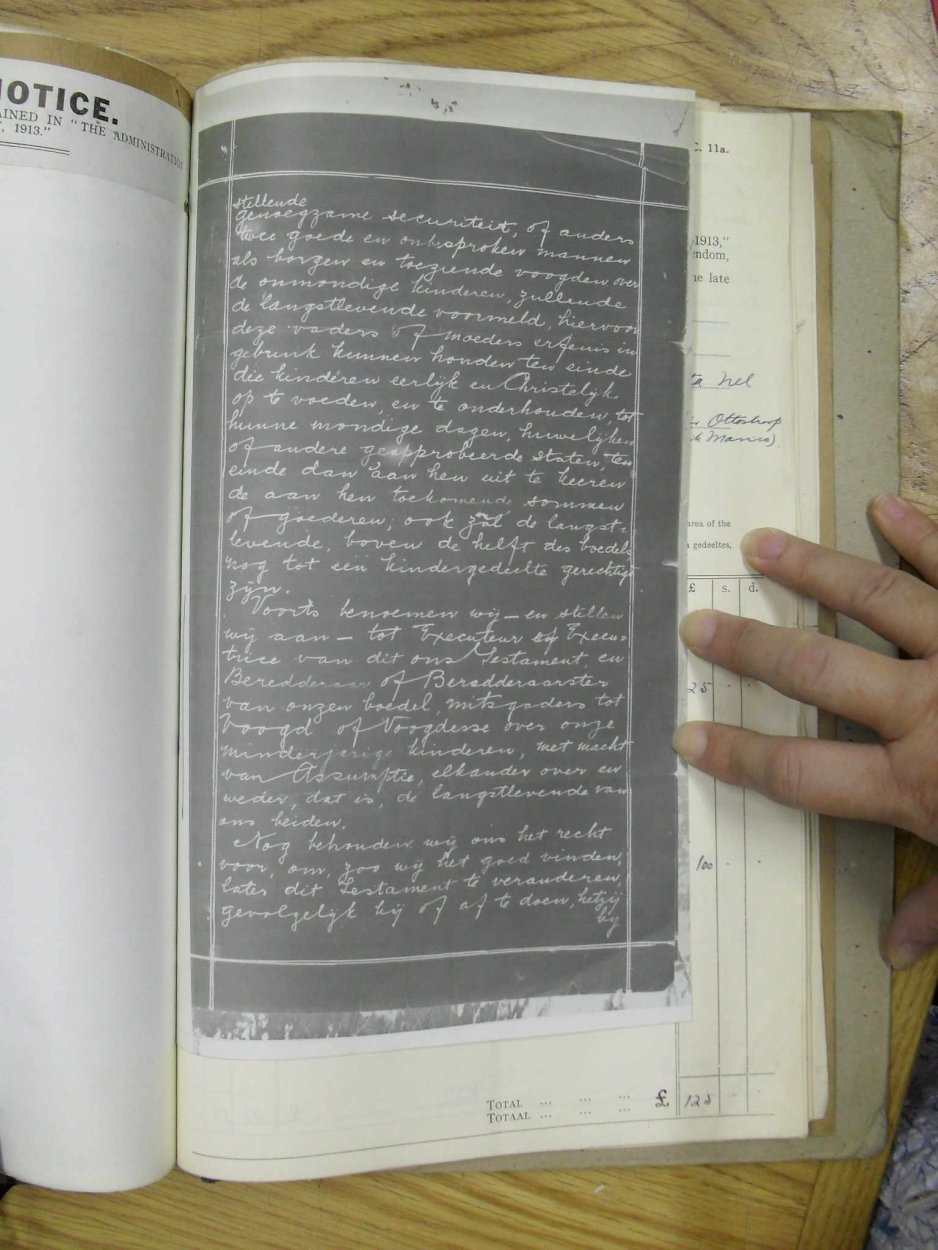 NOTICE.
AINED IN "THE ADMINISTRATION
, 1913."
stellende
genoegzame securiteit, of anders
twee goede en onbesproken mannen
als borgen en toeziende voogden over
de onmondige kinderen, zullende
de langstlevende voormeld, hiervoor
deze vaders of moeders erfenis in
gebruik kunnen houden ten einde
die kinderen eerlijk en Christelijk
op te voeden, en te onderhouden, tot
hunne mondige dagen, huwelijken
of andere geapprobeerde staten, ten
einde dan aan hen uit te keeren
de aan hen toekomende sommen
of goederen; ook zal de langst-
levende, boven de helft des boedels
nog tot een kindergedeelte gerechtigd
zijn.
Voorts benoemen wij — en stellen
wij aan — tot Executeur of Execu-
trice van dit ons Testament, en
Beredderaar of Beredderaarster
van onzen boedel, mitsgaders tot
Voogd of Voogdesse over onze
minderjarige kinderen, met macht
van Assumptie, elkander over en
weder, dat is, de langstlevende van
ons beiden.
Nog behouden wij ons het recht
voor, om, zoo wij het goed vinden,
later dit Testament te veranderen,
gevolgelijk bij of af te doen, hetzij
bij
C. 11a.
1913,"
endom,
he late
ta Nel
Ottoshoop
Marico)
area of the
n gedeeltes,
£ s. d.
25 - -
100 - -
TOTAL ... ... ... £ 125 - -
TOTAAL ... ... ...